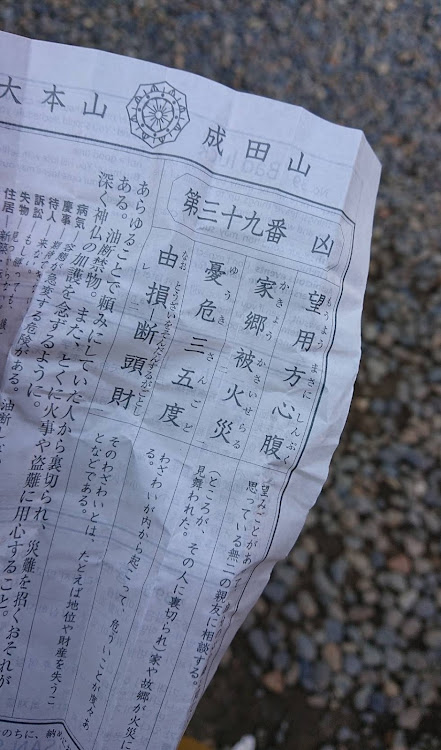 大本山 成田山
第三十九番 凶
望用方心腹
もうよう まさに しんぷく
家郷被火災
かきょう かさいせらる
憂危三五度
ゆうき さんごど
由損断頭財
なお とうざいをそんだんするがごとし
望みごとがあ
思っている無二の親友に相談する。
(ところが、その人に裏切られ)家や故郷が火災に
見舞われた。
わざわいが内から起こって、危ういことが度々あ
る。
そのわざわいとは、たとえば地位や財産を失うこ
となどである。
あらゆることで頼みにしていた人から裏切られ、災難を招くおそれが
ある。油断禁物。また、とくに火事や盗難に用心すること。
深く神仏の加護を念ずるように。
病気
慶事
待人
失物
訴訟
住居